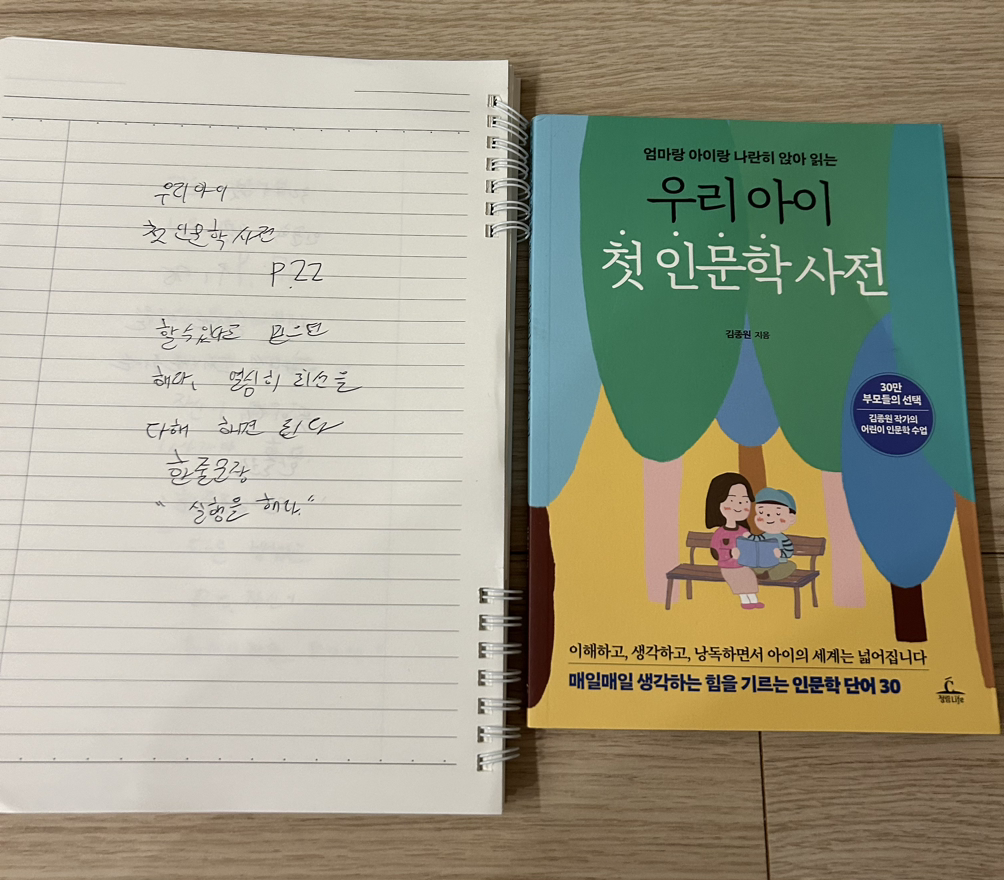 우리 아이
첫 인문학 사전
P.22
할 수 있다고 믿으면
해라, 열심히 최선을
다해 하면 된다
한줄문장
"실행을 해라."
엄마랑 아이랑 나란히 앉아 읽는
우리 아이
첫 인문학 사전
김종원 지음
30만
부모들의 선택
김종원 작가의
어린이 인문학 수업
이해하고, 생각하고, 낭독하면서 아이의 세계는 넓어집니다
매일매일 생각하는 힘을 기르는 인문학 단어 30
청림Life